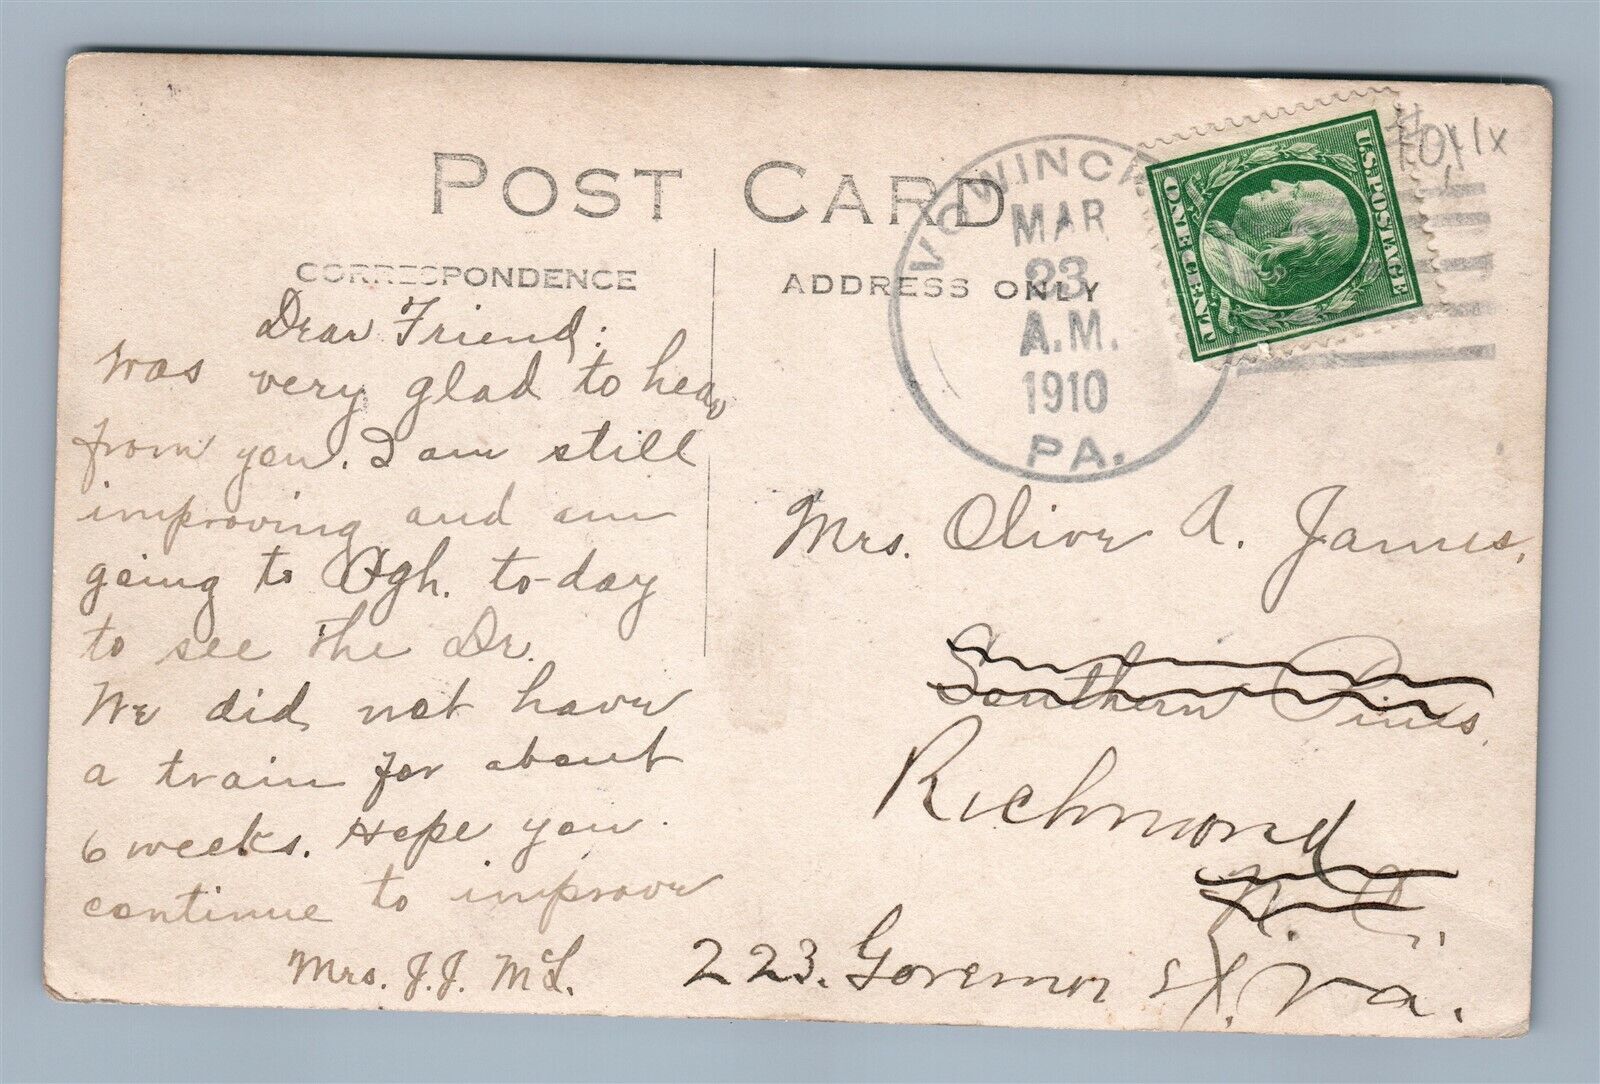 POST CARD
CORRESPONDENCE
ADDRESS ONLY
VOWINCK
MAR
23
A.M.
1910
PA.
U.S. POSTAGE
ONE CENT
Dear Friend:
Was very glad to hear
from you. I am still
improving and am
going to Pgh. to-day
to see the Dr.
We did not have
a train for about
6 weeks. Hope you
continue to improve
Mrs. J.J. McL.
Mrs. Oliver A. James,
Southern Pines,
Richmond
N. C.
223. Governor St. Va.